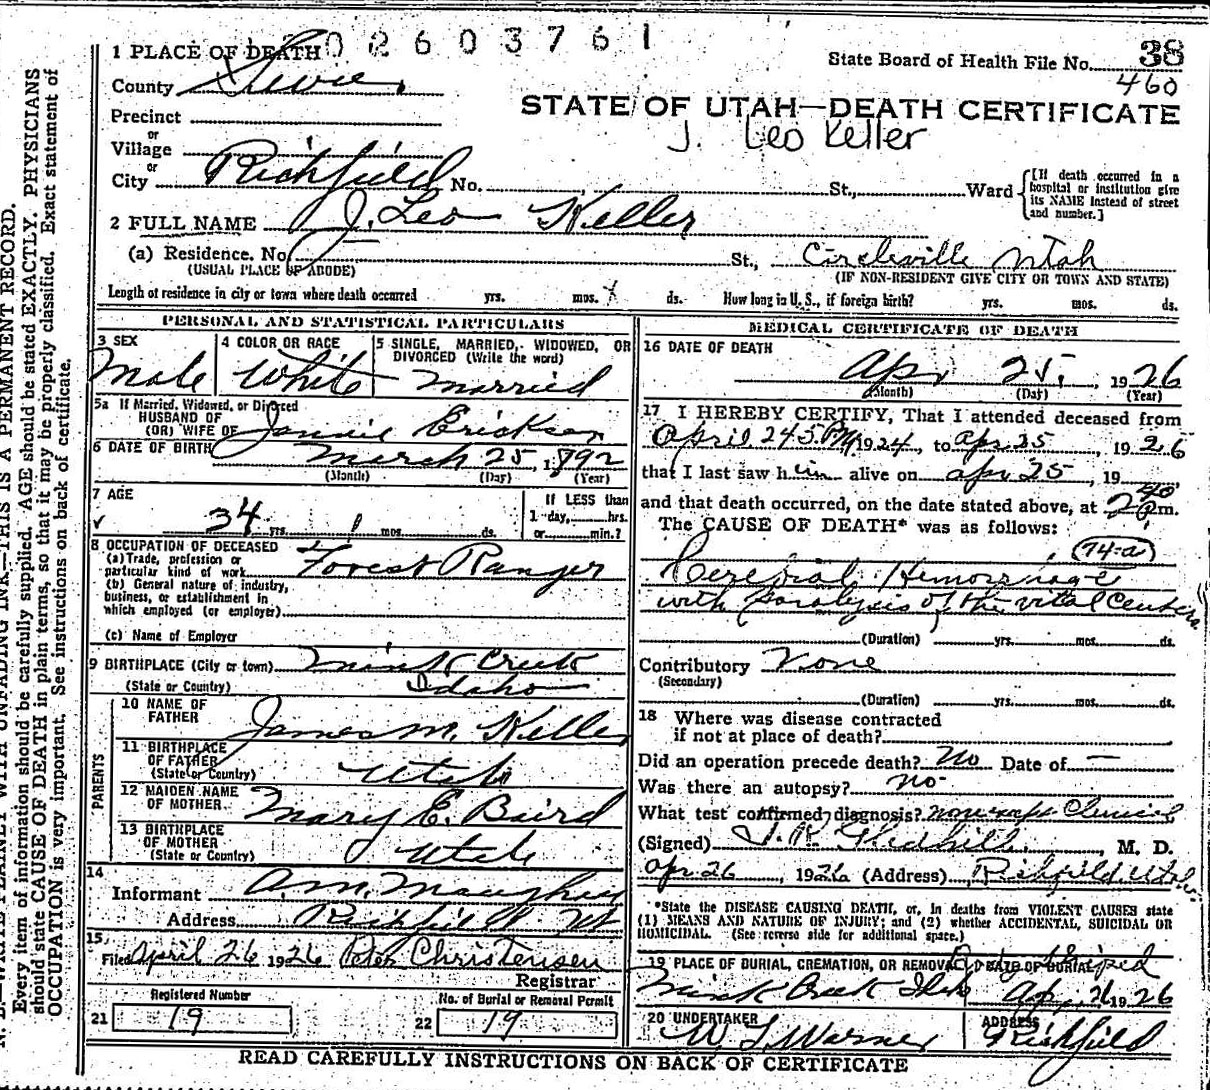 02603761
1 PLACE OF DEATH
State Board of Health File No. 38
460
County Sevier
STATE OF UTAH—DEATH CERTIFICATE
J. Leo Keller
Precinct
or
Village
or
City Richfield No. St., Ward
[If death occurred in a
hospital or institution give
its NAME instead of street
and number.]
2 FULL NAME J. Leo Keller
(a) Residence. No. St., Circleville Utah
(USUAL PLACE OF ABODE) (IF NON-RESIDENT GIVE CITY OR TOWN AND STATE)
Length of residence in city or town where death occurred yrs. mos. ds. How long in U. S., if foreign birth? yrs. mos. ds.
PERSONAL AND STATISTICAL PARTICULARS
3 SEX
Male
4 COLOR OR RACE
White
5 SINGLE, MARRIED, WIDOWED, OR
DIVORCED (Write the word)
married
5a If Married, Widowed, or Divorced
HUSBAND OF
(OR) WIFE OF Jennie Ericksen
6 DATE OF BIRTH March 25, 1892
(Month) (Day) (Year)
7 AGE
34 yrs. 1 mos. ds.
If LESS than
1 day, hrs.
or min.?
8 OCCUPATION OF DECEASED
(a) Trade, profession or
particular kind of work Forest Ranger
(b) General nature of industry,
business, or establishment in
which employed (or employer)
(c) Name of Employer
9 BIRTHPLACE (City or town) Mink Creek
(State or Country) Idaho
PARENTS
10 NAME OF
FATHER James M. Keller
11 BIRTHPLACE
OF FATHER
(State or Country) Utah
12 MAIDEN NAME
OF MOTHER Mary E. Baird
13 BIRTHPLACE
OF MOTHER
(State or Country) Utah
14
Informant A. M. Maughan
Address Richfield Ut
15
Filed April 26 1926 Peter Christensen
Registrar
Registered Number
21 19
No. of Burial or Removal Permit
22 19
MEDICAL CERTIFICATE OF DEATH
16 DATE OF DEATH
Apr 25, 1926
(Month) (Day) (Year)
17 I HEREBY CERTIFY, That I attended deceased from
April 24 5 PM 1924, to Apr 25, 1926
that I last saw him alive on Apr 25, 19
and that death occurred, on the date stated above, at 2 40 Pm.
The CAUSE OF DEATH* was as follows:
74-a
Cerebral Hemorrhage
with paralysis of the vital Centers
(Duration) yrs. mos. ds.
Contributory None
(Secondary)
(Duration) yrs. mos. ds.
18 Where was disease contracted
if not at place of death?
Did an operation precede death? No Date of —
Was there an autopsy? no
What test confirmed diagnosis? none except Clinical
(Signed) Gledhill, M. D.
Apr 26, 1926 (Address) Richfield Utah
*State the DISEASE CAUSING DEATH, or, in deaths from VIOLENT CAUSES state
(1) MEANS AND NATURE OF INJURY; and (2) whether ACCIDENTAL, SUICIDAL OR
HOMICIDAL. (See reverse side for additional space.)
19 PLACE OF BURIAL, CREMATION, OR REMOVAL
Mink Creek Ida
DATE OF BURIAL
Body Shiped
Apr 26 1926
20 UNDERTAKER
W. L. Warner
ADDRESS
Richfield
READ CAREFULLY INSTRUCTIONS ON BACK OF CERTIFICATE
N. B.—WRITE PLAINLY WITH UNFADING INK—THIS IS A PERMANENT RECORD.
Every item of information should be carefully supplied. AGE should be stated EXACTLY. PHYSICIANS
should state CAUSE OF DEATH in plain terms, so that it may be properly classified. Exact statement of
OCCUPATION is very important. See instructions on back of certificate.